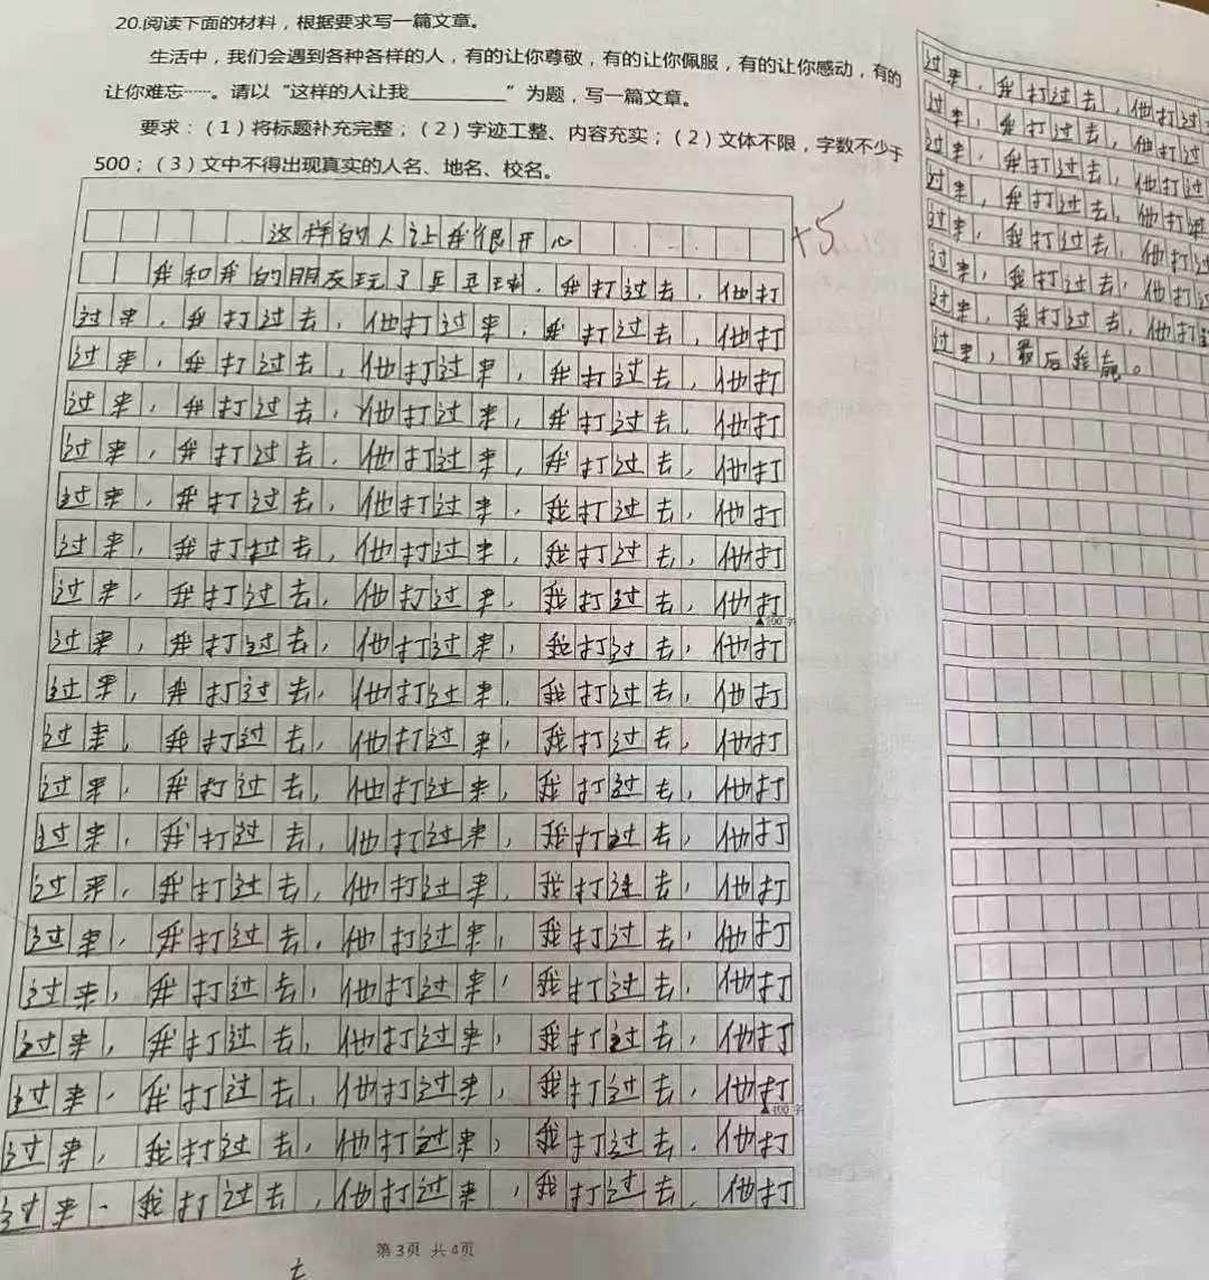 20.阅读下面的材料，根据要求写一篇文章。
生活中，我们会遇到各种各样的人，有的让你尊敬，有的让你佩服，有的让你感动，有的
让你难忘……。请以“这样的人让我__________”为题，写一篇文章。
要求：（1）将标题补充完整；（2）字迹工整、内容充实；（2）文体不限，字数不少于
500；（3）文中不得出现真实的人名、地名、校名。
这样的人让我很开心
+5
我和我的朋友玩了乒乓球，我打过去，他打
过来，我打过去，他打过来，我打过去，他打
过来，我打过去，他打过来，我打过去，他打
过来，我打过去，他打过来，我打过去，他打
过来，我打过去，他打过来，我打过去，他打
过来，我打过去，他打过来，我打过去，他打
过来，我打过去，他打过来，我打过去，他打
过来，我打过去，他打过来，我打过去，他打
▲200字
过来，我打过去，他打过来，我打过去，他打
过来，我打过去，他打过来，我打过去，他打
过来，我打过去，他打过来，我打过去，他打
过来，我打过去，他打过来，我打过去，他打
过来，我打过去，他打过来，我打过去，他打
过来，我打过去，他打过来，我打过去，他打
过来，我打过去，他打过来，我打过去，他打
过来，我打过去，他打过来，我打过去，他打
过来，我打过去，他打过来，我打过去，他打
过来，我打过去，他打过来，我打过去，他打
▲400字
过来，我打过去，他打过来，我打过去，他打
过来，我打过去，他打过来，我打过去，他打
第3页 共4页
过来，我打过去，他打过
过来，我打过去，他打过
过来，我打过去，他打过
过来，我打过去，他打过
过来，我打过去，他打过
过来，我打过去，他打过
过来，我打过去，他打过
过来，最后我赢。